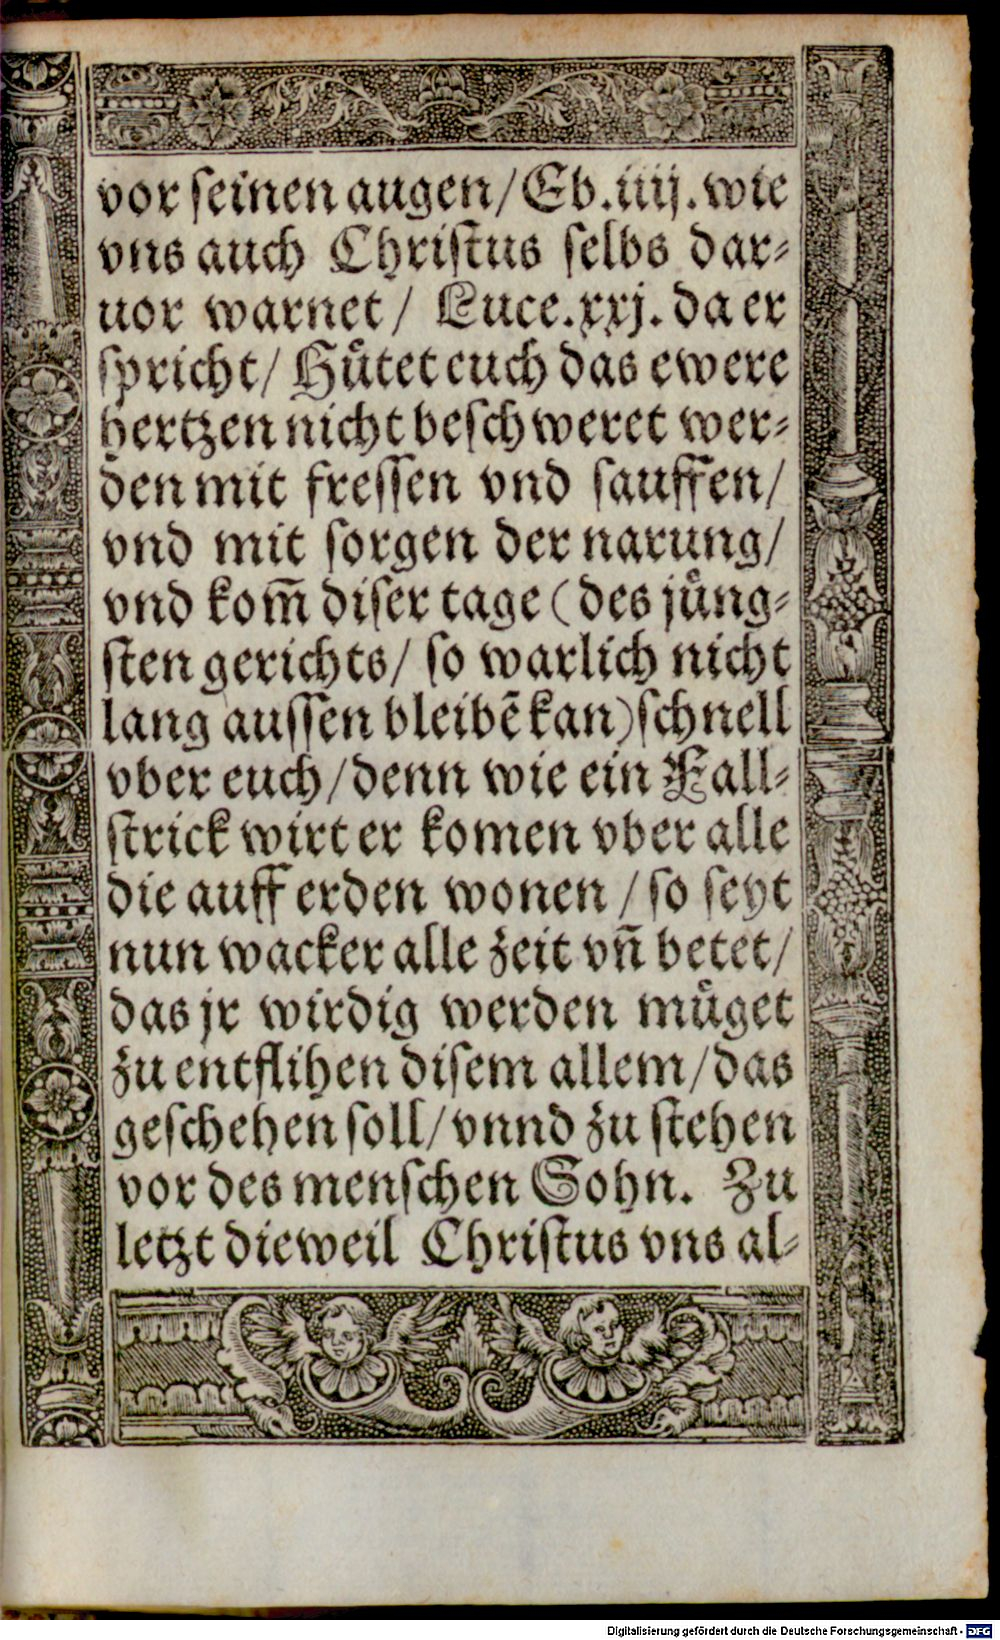 vor seinen augen/ Eb.iiij. wie
vns auch Christus selbs dar⸗
uor warnet/ Luce.xxj. da er
spricht/ Huͤtet euch das ewere
hertzen nicht beschweret wer⸗
den mit fressen vnd sauffen/
vnd mit sorgen der narung/
vnd kom̅ diser tage (des juͤng⸗
sten gerichts/ so warlich nicht
lang aussen bleibē kan) schnell
vber euch/ denn wie ein Fall⸗
strick wirt er komen vber alle
die auff erden wonen/ so seyt
nun wacker alle zeit vn̅ betet/
das jr wirdig werden muͤget
zu entflihen disem allem/ das
geschehen soll/ vnnd zu stehen
vor des menschen Sohn. Zu
letzt dieweil Christus vns al⸗
Digitalisierung gefördert durch die Deutsche Forschungsgemeinschaft - DFG